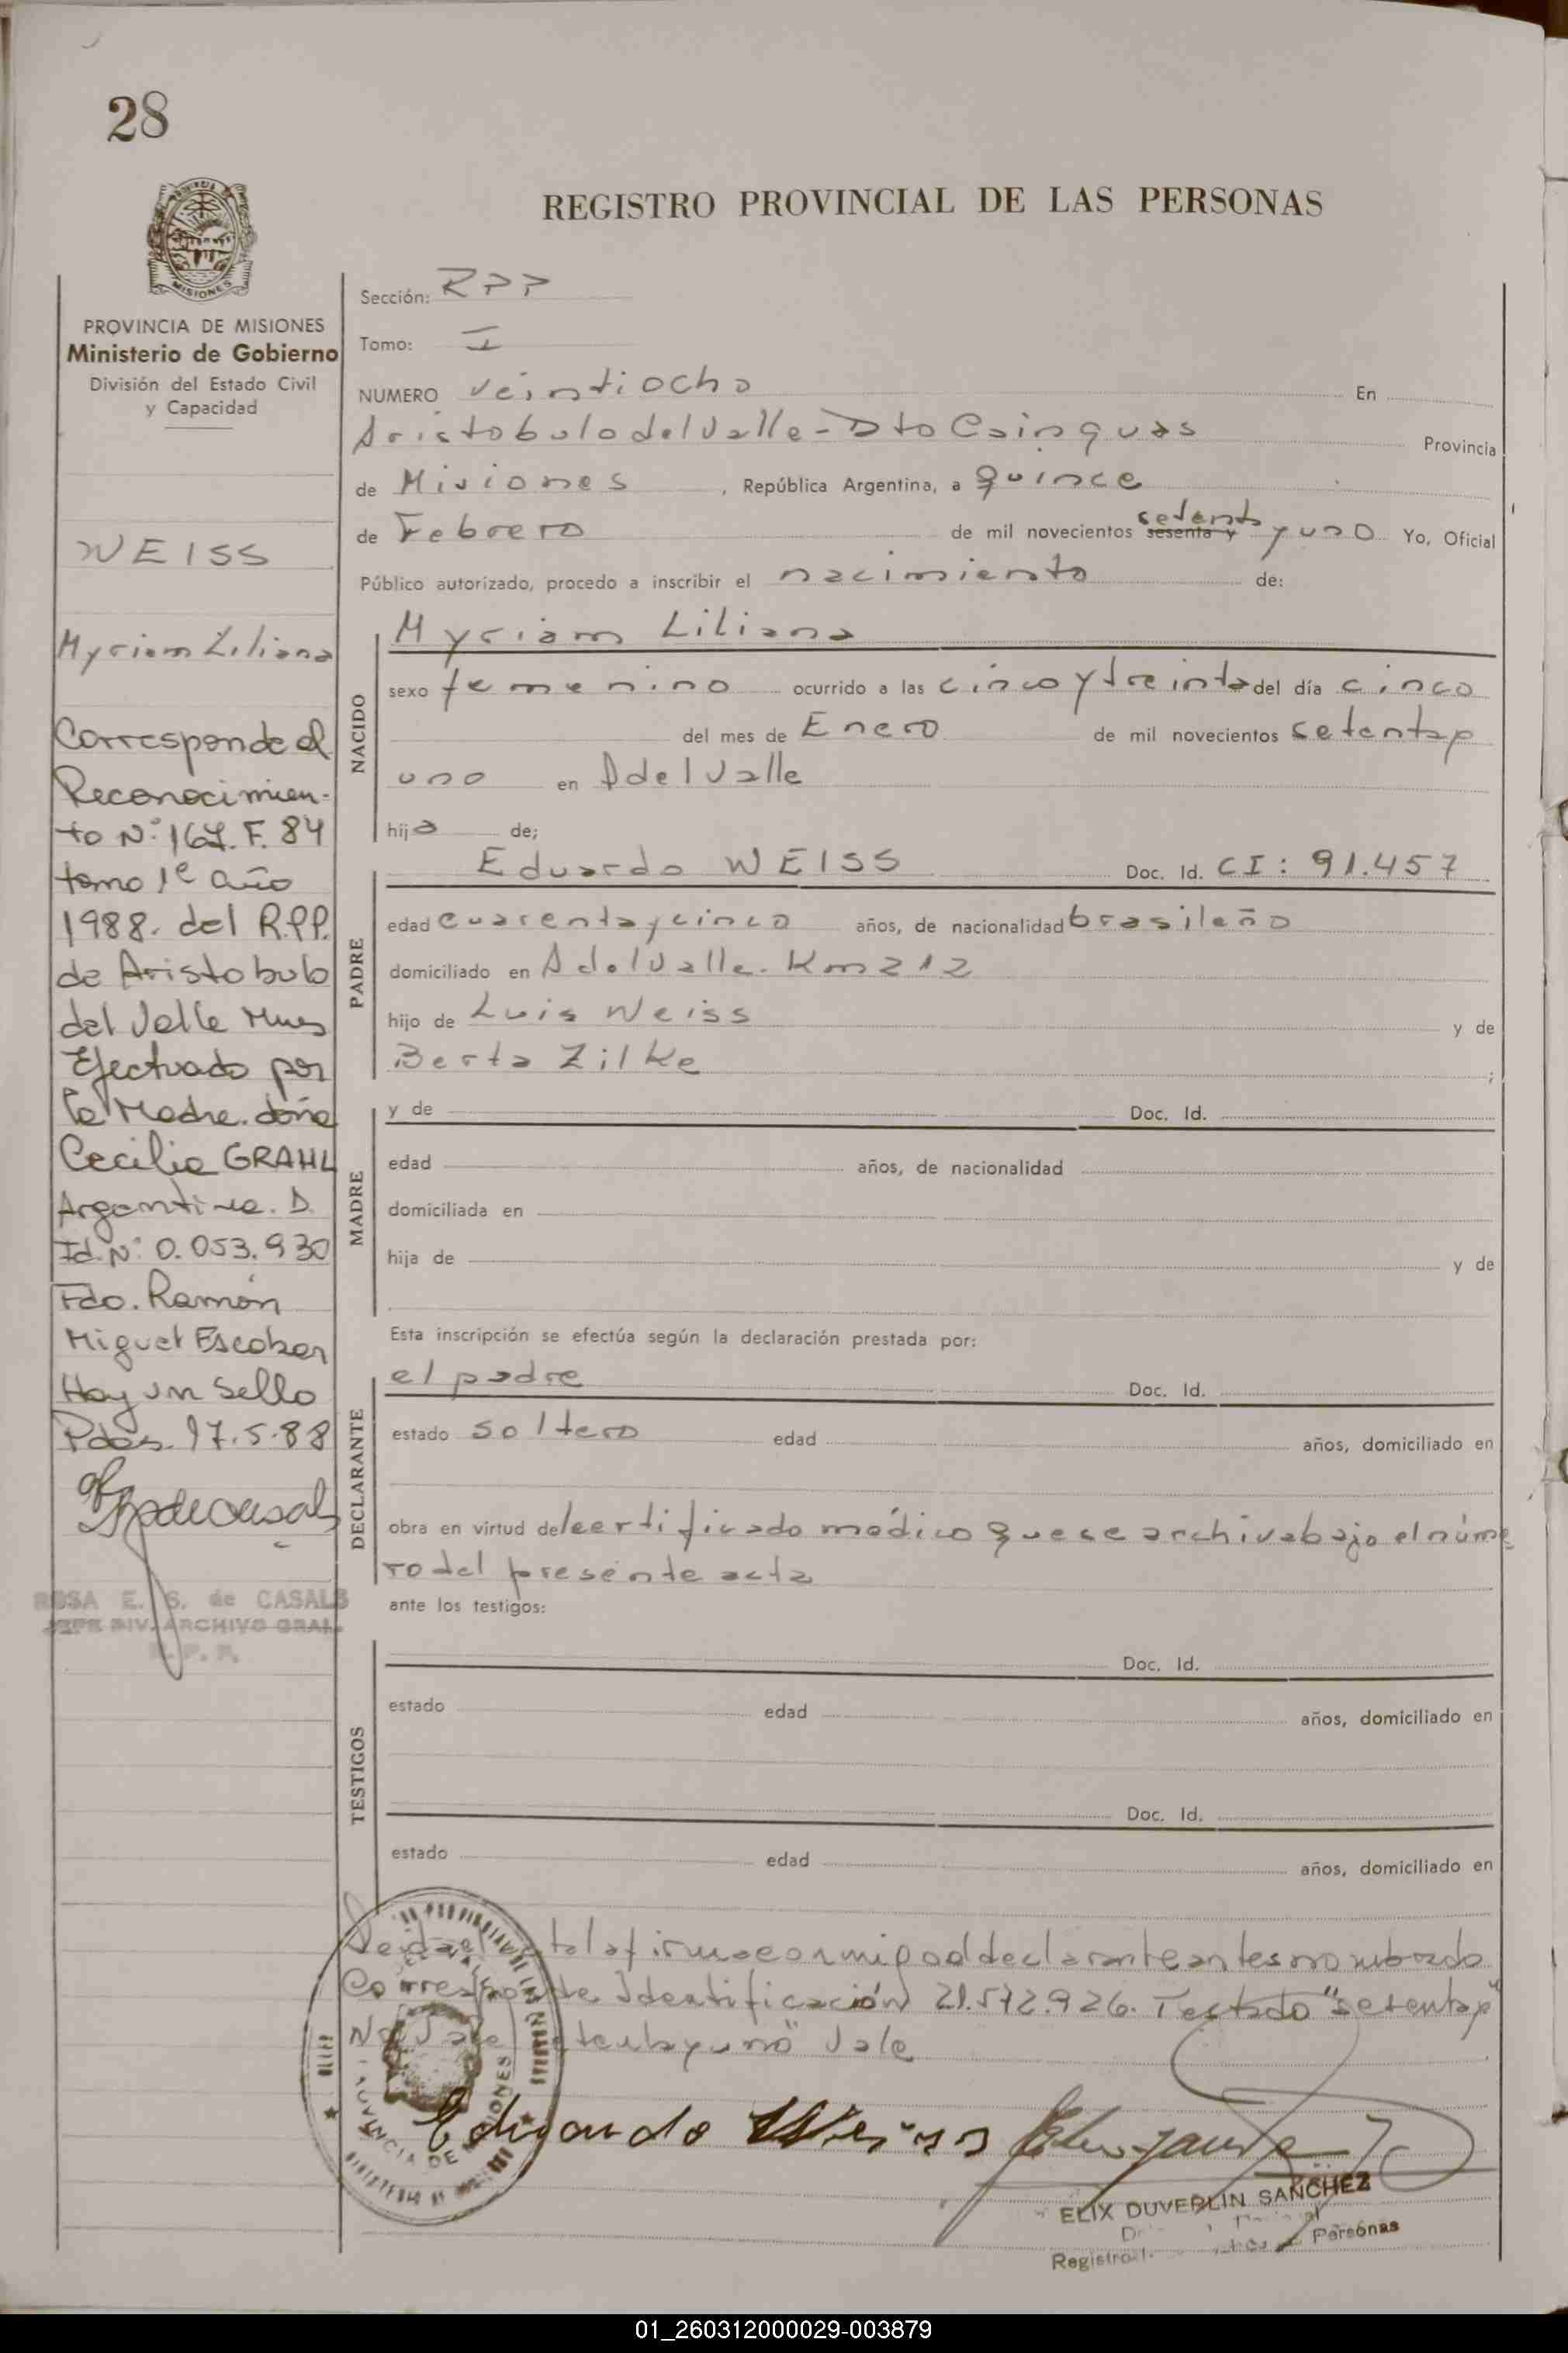 28
REGISTRO PROVINCIAL DE LAS PERSONAS
MISIONES
PROVINCIA DE MISIONES
Ministerio de Gobierno
División del Estado Civil
y Capacidad
WEISS
Myriam Liliana
Corresponde al
Reconocimien-
to Nº 167. F. 84
tomo 1º año
1988. del R.P.P.
de Aristobulo
del Valle Mnes
Efectuado por
la Madre. doña
Cecilia GRAHL
Argentina. D.
Id. Nº 0.053.930
Fdo. Ramón
Miguel Escobar
Hay un Sello
Pdas. 17.5.88
ROSA E. S. de CASALS
JEFE DIV. ARCHIVO GRAL.
R. P. P.
Sección: RPP
Tomo: I
NUMERO veintiocho En
Aristobulo del Valle - Dto Cainguas Provincia
de Misiones, República Argentina, a quince
de Febrero de mil novecientos sesenta y setenta y uno Yo, Oficial
Público autorizado, procedo a inscribir el nacimiento de:
NACIDO
Myriam Liliana
sexo femenino ocurrido a las cinco y treinta del día cinco
del mes de Enero de mil novecientos setenta y
uno en A del Valle
hija de;
PADRE
Eduardo WEISS Doc. Id. CI: 91.457
edad cuarenta y cinco años, de nacionalidad brasileño
domiciliado en A del Valle. Km 212
hijo de Luis Weiss y de
Berta Zilke ;
MADRE
y de Doc. Id.
edad años, de nacionalidad
domiciliada en
hija de y de
Esta inscripción se efectúa según la declaración prestada por:
DECLARANTE
el padre Doc. Id.
estado soltero edad años, domiciliado en
obra en virtud del certificado médico que se archiva bajo el núme
ro del presente acta
ante los testigos:
TESTIGOS
Doc. Id.
estado edad años, domiciliado en
Doc. Id.
estado edad años, domiciliado en
la firma con migo el declarante antes nombrado
Corresponde Identificación 21.572.926. Testado "setenta y"
No Vale y uno" Vale
PROVINCIA DE MISIONES
Eduardo Weiss
ELIX DUVERLIN SANCHEZ
Registro Personas
01_260312000029-003879